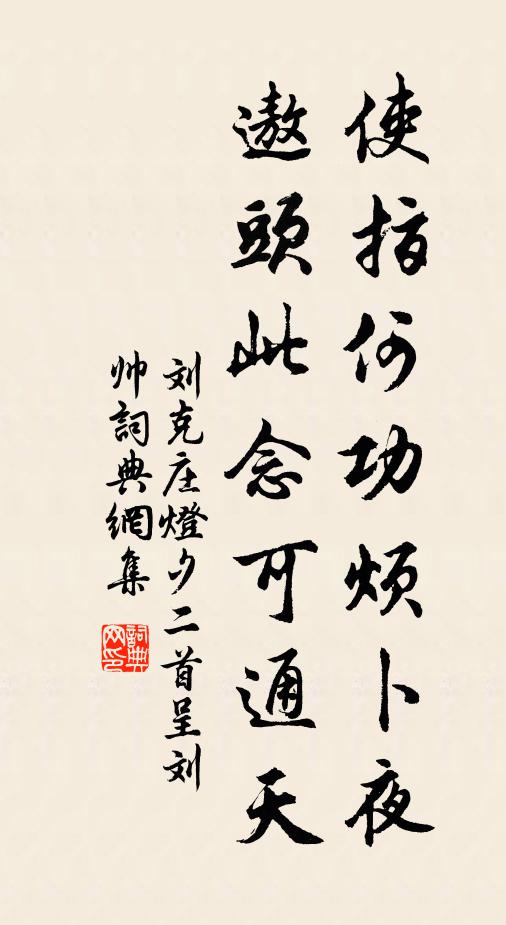 使指何功烦卜夜
遨頭此念可通天
刘克庄燈夕二首呈刘
帅詞典網集
詞典
网印